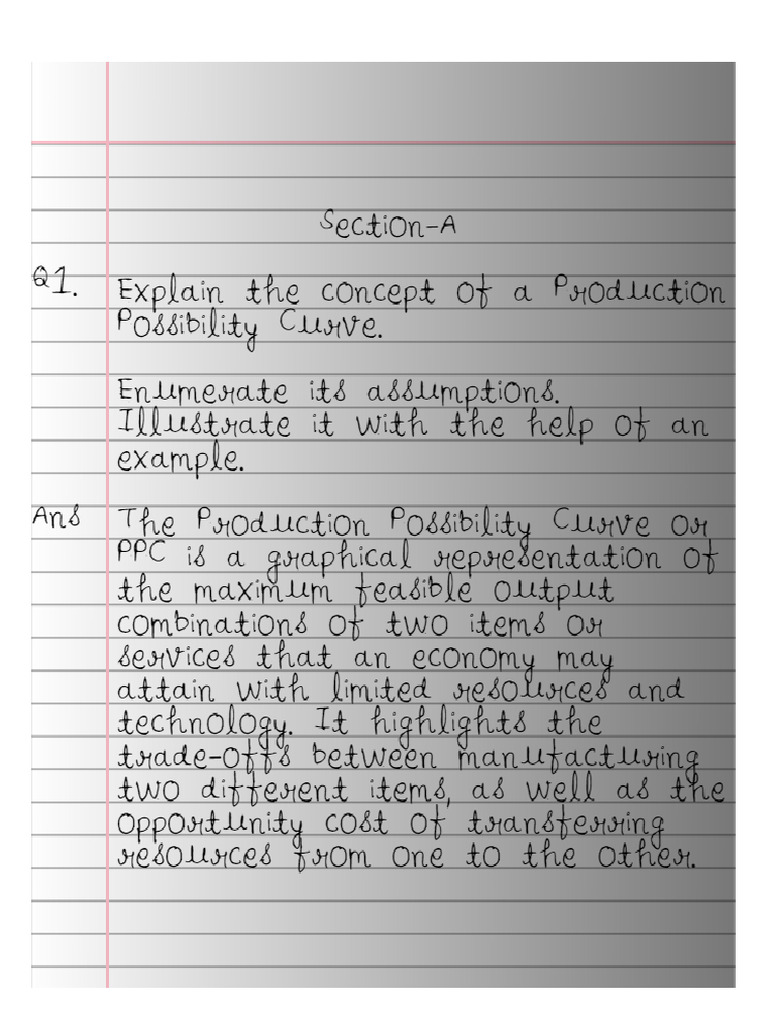 Section-A
Q1. Explain the concept of a Production
Possibility Curve.
Enumerate its assumptions.
Illustrate it with the help of an
example.
Ans The Production Possibility Curve or
PPC is a graphical representation of
the maximum feasible output
combinations of two items or
services that an economy may
attain with limited resources and
technology. It highlights the
trade-offs between manufacturing
two different items, as well as the
opportunity cost of transferring
resources from one to the other.